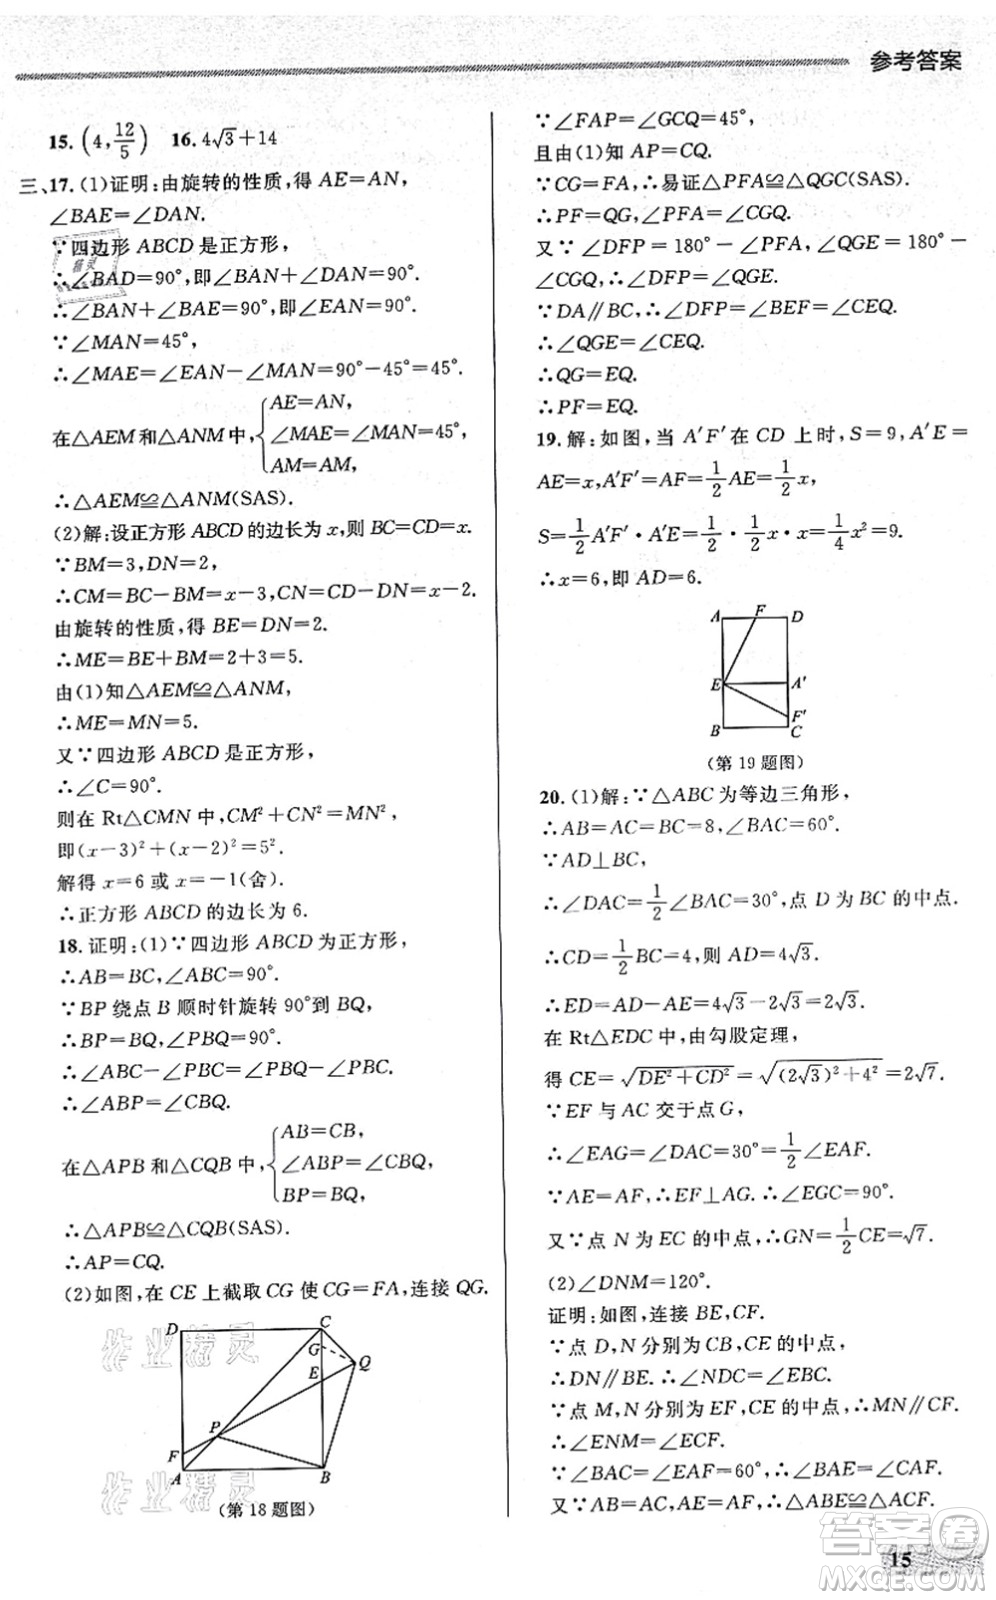 参考答案
15. (4, 12/5)  16. 4√3+14
三、17. (1)证明:由旋转的性质,得 AE=AN,
∠BAE=∠DAN.
∵四边形 ABCD 是正方形,
∴∠BAD=90°,即∠BAN+∠DAN=90°.
∴∠BAN+∠BAE=90°,即∠EAN=90°.
∵∠MAN=45°,
∴∠MAE=∠EAN-∠MAN=90°-45°=45°.
在△AEM 和△ANM 中,{AE=AN,
∠MAE=∠MAN,
AM=AM,
∴△AEM≌△ANM(SAS).
(2)解:设正方形 ABCD 的边长为 x,则 BC=CD=x.
∵BM=3,DN=2,
∴CM=BC-BM=x-3,CN=CD-DN=x-2.
由旋转的性质,得 BE=DN=2.
∴ME=BE+BM=2+3=5.
由(1)知△AEM≌△ANM,
∴ME=MN=5.
又∵四边形 ABCD 是正方形,
∴∠C=90°.
则在 Rt△CMN 中,CM²+CN²=MN²,
即(x-3)²+(x-2)²=5².
解得 x=6 或 x=-1(舍).
∴正方形 ABCD 的边长为 6.
18. 证明:(1)∵四边形 ABCD 为正方形,
∴AB=BC,∠ABC=90°.
∵BP 绕点 B 顺时针旋转 90°到 BQ,
∴BP=BQ,∠PBQ=90°.
∴∠ABC-∠PBC=∠PBQ-∠PBC.
∴∠ABP=∠CBQ.
在△APB 和△CQB 中,{AB=CB,
∠ABP=∠CBQ,
BP=BQ,
∴△APB≌△CQB(SAS).
∴AP=CQ.
(2)如图,在 CE 上截取 CG 使 CG=FA,连接 QG.
D C G Q E P F A B
(第 18 题图)
∵∠FAP=∠GCQ=45°,
且由(1)知 AP=CQ.
∵CG=FA,∴易证△PFA≌△QGC(SAS).
∴PF=QG,∠PFA=∠CGQ.
又∵∠DFP=180°-∠PFA,∠QGE=180°-∠CGQ,∴∠DFP=∠QGE.
∵DA∥BC,∴∠DFP=∠CEQ.
∴∠QGE=∠CEQ.
∴QG=EQ.
∴PF=EQ.
19. 解:如图,当 A'F' 在 CD 上时,S=9,A'E=
AE=x,A'F'=AF=1/2 AE=1/2 x,
S=1/2 A'F'·A'E=1/2·1/2 x·x=1/4 x²=9.
∴x=6,即 AD=6.
A F D
E A'
F'
B C
(第 19 题图)
20. (1)解:∵△ABC 为等边三角形,
∴AB=AC=BC=8,∠BAC=60°.
∵AD⊥BC,
∴∠DAC=1/2∠BAC=30°,点 D 为 BC 的中点.
∴CD=1/2 BC=4,则 AD=4√3.
∴ED=AD-AE=4√3-2√3=2√3.
在 Rt△EDC 中,由勾股定理,
得 CE=√(DE²+CD²)=√((2√3)²+4²)=2√7.
∵EF 与 AC 交于点 G,
∴∠EAG=∠DAC=30°=1/2∠EAF.
∵AE=AF,∴EF⊥AG.∴∠EGC=90°.
又∵点 N 为 EC 的中点,∴GN=1/2 CE=√7.
(2)∠DNM=120°.
证明:如图,连接 BE,CF.
∵点 D,N 分别为 CB,CE 的中点,
∴DN∥BE.∴∠NDC=∠EBC.
∵点 M,N 分别为 EF,EC 的中点,∴MN∥CF.
∴∠ENM=∠ECF.
∵∠BAC=∠EAF=60°,∴∠EAB=∠FAC.
又∵AB=AC,AE=AF,∴△ABE≌△ACF.
15
作业精灵
作业精灵
答案圈
MXQE.COM